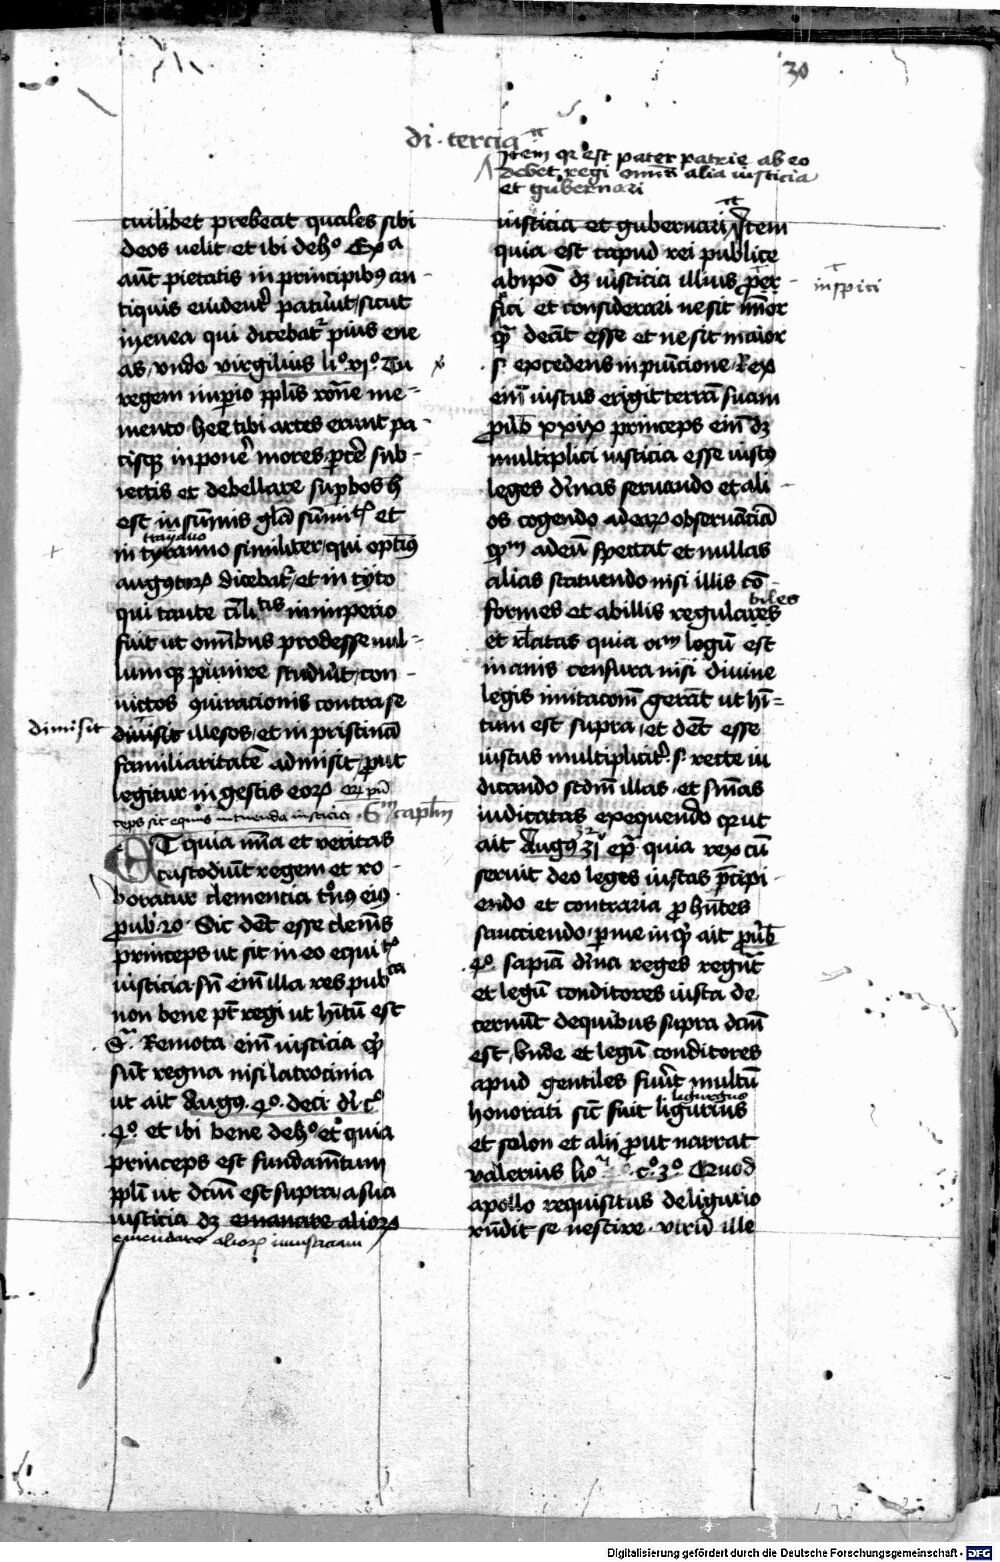 30
di. tercia
Item qr est pater patrie ab eo
debet regi omnis alia iusticia
et gubernari
cuilibet prebeat quales sibi
deos uelit et ibi deho Exa
aut pietatis in principibus an-
tiquis euident patuerut sicut
in enea qui dicebatr pius ene
as unde virgilius lio vjo Tu
regem imperio pplis rone me-
mento hee tibi artes erunt pa-
cisque inponere mores parcere sub-
iectis et debellare superbos h
est in sumis gla et
trayano
in tyranno similiter qui optius
augustorum dicebatr et in tyto
qui tante cili tatis in imperio
fuit ut omnibus prodesse nul-
lumque punire studuit con-
uictos coniuracionis contra se
dimisit
dimisit illesos et in pristina
familiaritate admisit prout
legitur in gestis eorum
ceps sit equus intuenda iusticia Sm caplm
ET quia mia et veritas
custodiunt regem et ro-
boratur clementia tronus eius
proub 20 Sic debet esse clemens
princeps ut sit in eo equitas
iusticia sn eni illa res pubca
non bene pt regi ut hitu est
Sa Remota eni iusticia
sunt regna nisi latrocinia
ut ait Augus 4o deci di co
4o et ibi bene deho et quia
princeps est fundamtum
ppli ut dcm est supra a sua
iusticia dz emanare aliorum
emendare aliorum iniusticiam
iusticia et gubernari Item
quia est capud rei publice
ab ipo dz iusticia illius per
inspici
fici et considerari ne sit minor
qua deceat esse et ne sit maior
s. excedens in punicione Rex
eni iustus erigit terra suam
proub xxix princeps eni dz
multiplici iusticia esse iustus
leges diuinas seruando et ali-
os cogendo ad earum obseruancia
adeu spectat et nullas
alias statuendo nisi illis co-
formes et ab illis regulares
biles
et relatas quia legum est
inanis censura nisi diuine
legis imitacom gerat ut hi-
tum est supra et debet esse
iustus multipliciter s. recte iu
dicando scdm illas et sentencias
iudicatas exequendo qr ut
ait Augus epa quia rex cu
seruit deo leges iustas precipi-
endo et contraria prohibentes
sanciendo per me inquit ait prouerb
4o sapia diuina reges regnant
et legum conditores iusta de
cernunt de quibus supra dcm
est Unde et legum conditores
apud gentiles fuerunt multum
ligurguo
honorati sic fuit ligurius
et solon et alij prout narrat
valerius lio co 3o Quod
apollo requisitus de ligurio
rndit se nescire virum ille